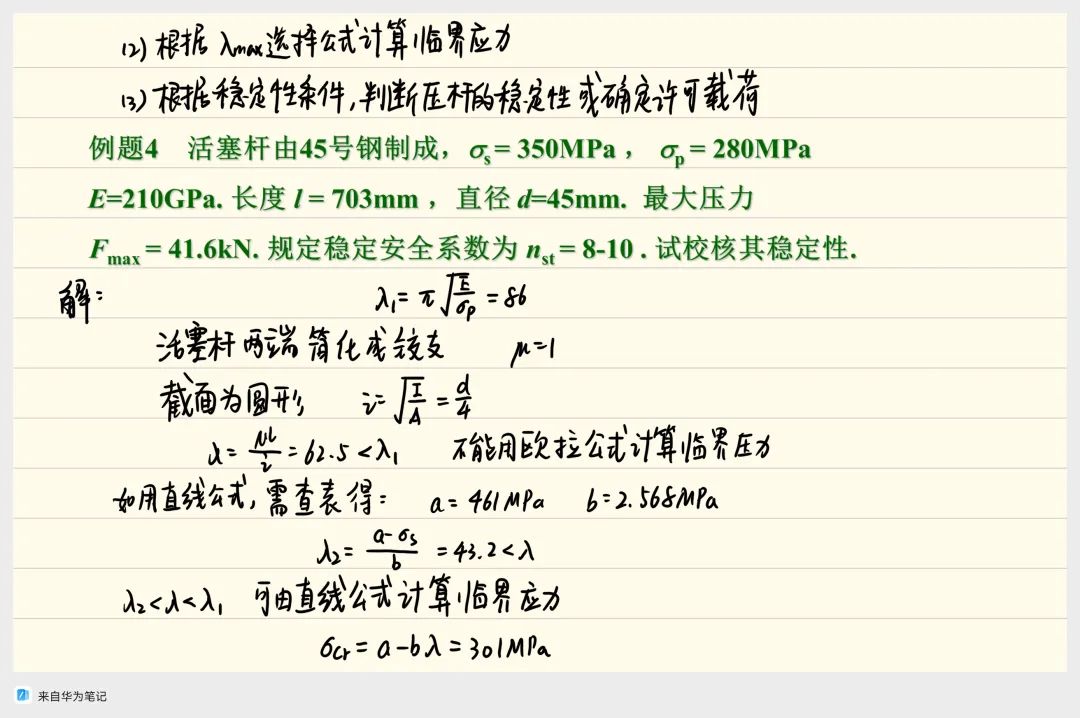 (2) 根据 λmax选择公式计算临界应力
(3) 根据稳定性条件,判断压杆的稳定性或确定许可载荷
例题4 活塞杆由45号钢制成，σs = 350MPa ， σp = 280MPa
E=210GPa. 长度 l = 703mm ，直径 d=45mm. 最大压力
Fmax = 41.6kN. 规定稳定安全系数为 nst = 8-10 . 试校核其稳定性.
解: λ₁= π√(E/σp) = 86
活塞杆两端简化成铰支 μ=1
截面为圆形, i= √(I/A) = d/4
λ= μl/i = 62.5 < λ₁ 不能用欧拉公式计算临界压力
如用直线公式,需查表得: a = 461MPa b=2.568MPa
λ₂= (a-σs)/b = 43.2 < λ
λ₂<λ<λ₁ 可由直线公式计算临界应力
σcr= a-bλ = 301MPa
来自华为笔记